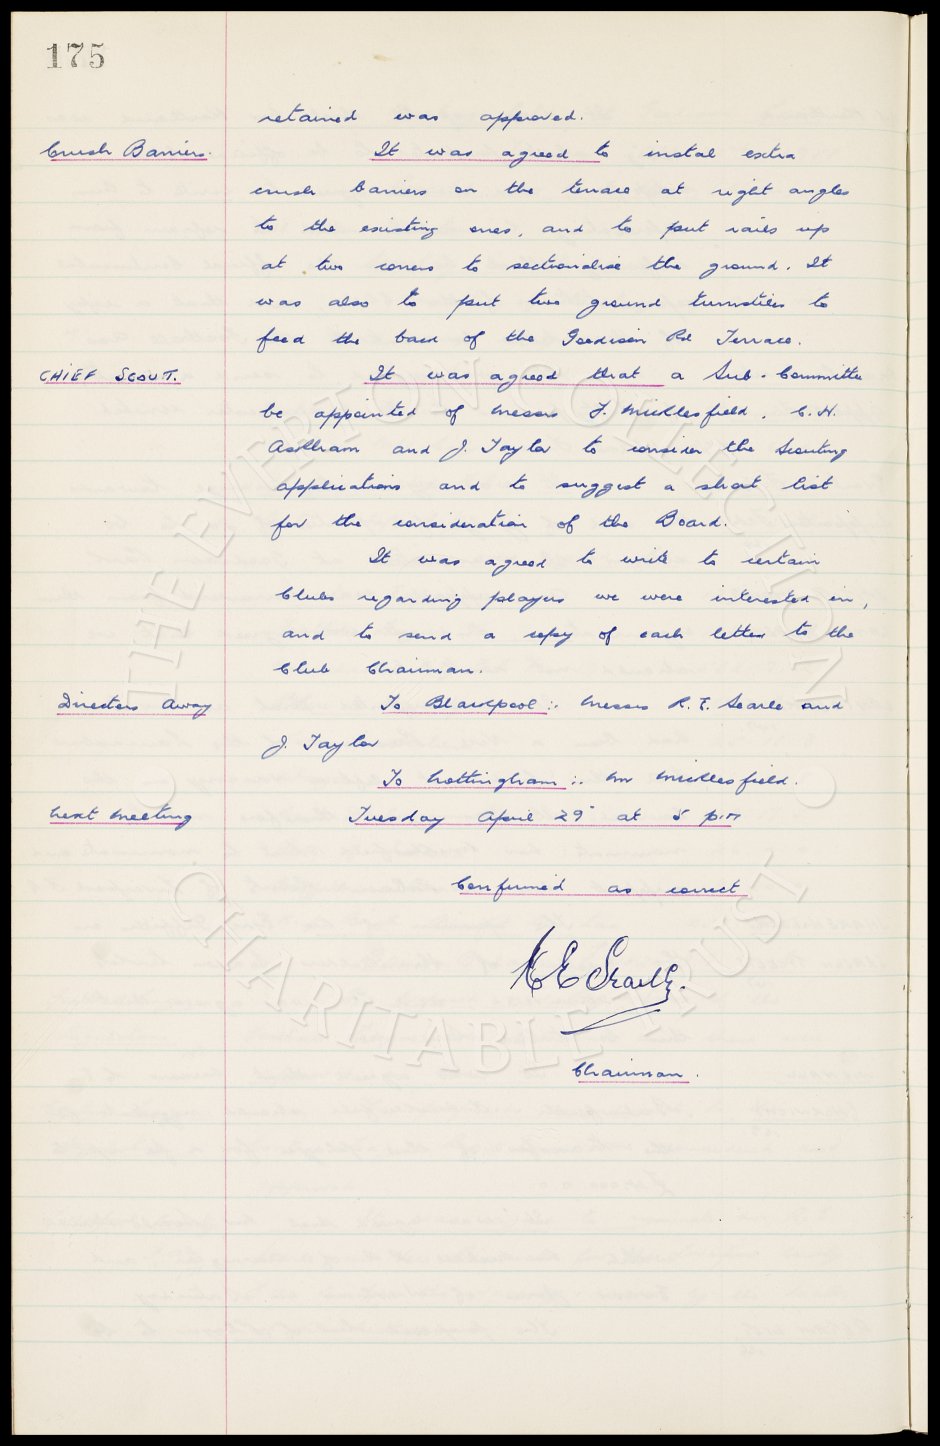 175
retained was approved.
Crush Barriers. It was agreed to instal extra
crush barriers on the terrace at right angles
to the existing ones, and to put rails up
at two corners to sectionalise the ground. It
was also to put two ground turnstiles to
feed the back of the Goodison Rd Terrace.
CHIEF SCOUT. It was agreed that a Sub-Committee
be appointed of Messrs F. Micklesfield, C. H.
Askham and J. Taylor to consider the Scouting
applications and to suggest a short list
for the consideration of the Board.
It was agreed to write to certain
Clubs regarding players we were interested in,
and to send a copy of each letter to the
Club Chairman.
Directors Away To Blackpool:- Messrs R. E. Searle and
J. Taylor
To Nottingham:- Mr Micklesfield.
Next Meeting Tuesday April 29" at 5 p.m
Confirmed as correct
Searle.
Chairman.
© THE EVERTON COLLECTION
CHARITABLE TRUST